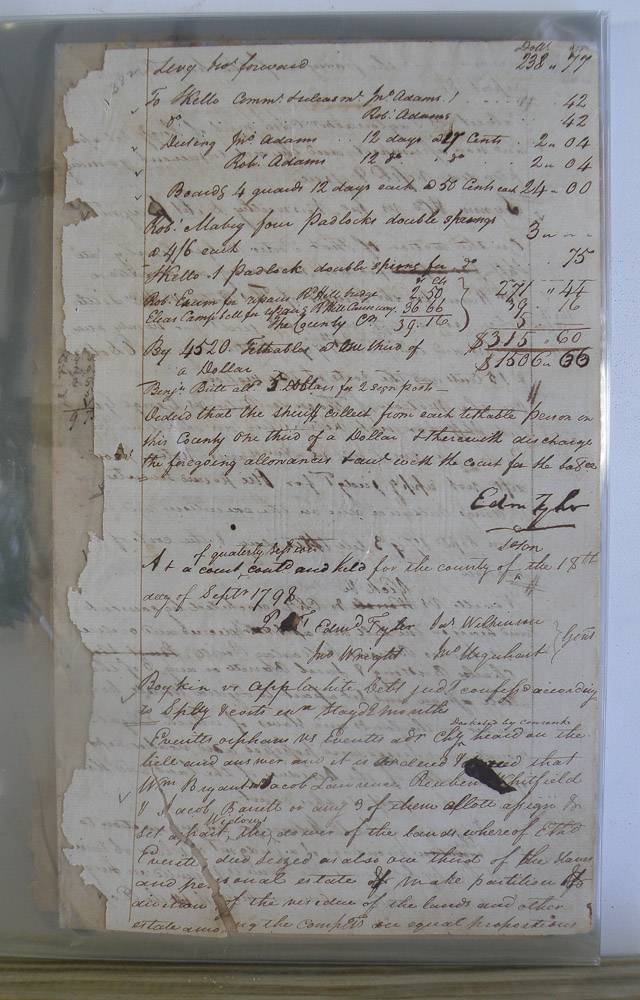 Dolls Cts
Levy bro.t forward 238 " 77
To Skelto Comm.t & releasm.t Jn.o Adams 1 42
d.o Rob.t Adams 42
Dieting Jn.o Adams 12 days a 17 Cents 2 " 04
Rob.t Adams 12 d.o d.o 2 " 04
Board.g 4 guards 12 days each a 50 Cents each 24 " 00
Rob.t Mabry four Padlocks double springs
a 4/6 each 3 " "
Skelto 1 Padlock double spring for d.o 75
Cts
271 " 44
Rob.t for repairs bridge 2.50
Elias Campbell for repairs Mill Causeway 36 66 39 . 16
The County C 39.16 5
$315 . 60
By 4520 Tithables at One third of $1506 . 66
a Dollar
Benj.n Britt all.d 5 Dollars for 2 sign posts
Orderd that the sheriff collect from each tithable person in
this County One third of a Dollar & therewith discharge
the foregoing allowances & acc.t with the court for the bal.ce
Edw.d Tyler
of quarterly session
At a court cont.d and held for the county of S.oton the 18th
day of Sept.r 1798
Pres.t Edw.d Tyler Wilkinson
Jno Wright Urquhart Gent
Boykin vs Applewhite Debt jud.t confess.d according
to Sp.lty & costs stay.d 2 months
Everitts orphans vs Everitts adr Ch.y Docketed by consent heard on the
bill and answer and it is ordered & decreed that
Wm Bryant Jacob Lawrence Reuben Whitfield
& Jacob Barrett or any 3 of them allott assign &
set apart the Widows dower of the lands whereof Eth.d
Everitt died seized as also one third of the slaves
and personal estate & make partition &
division of the residue of the lands and other
estate among the Compl.ts in equal proportions